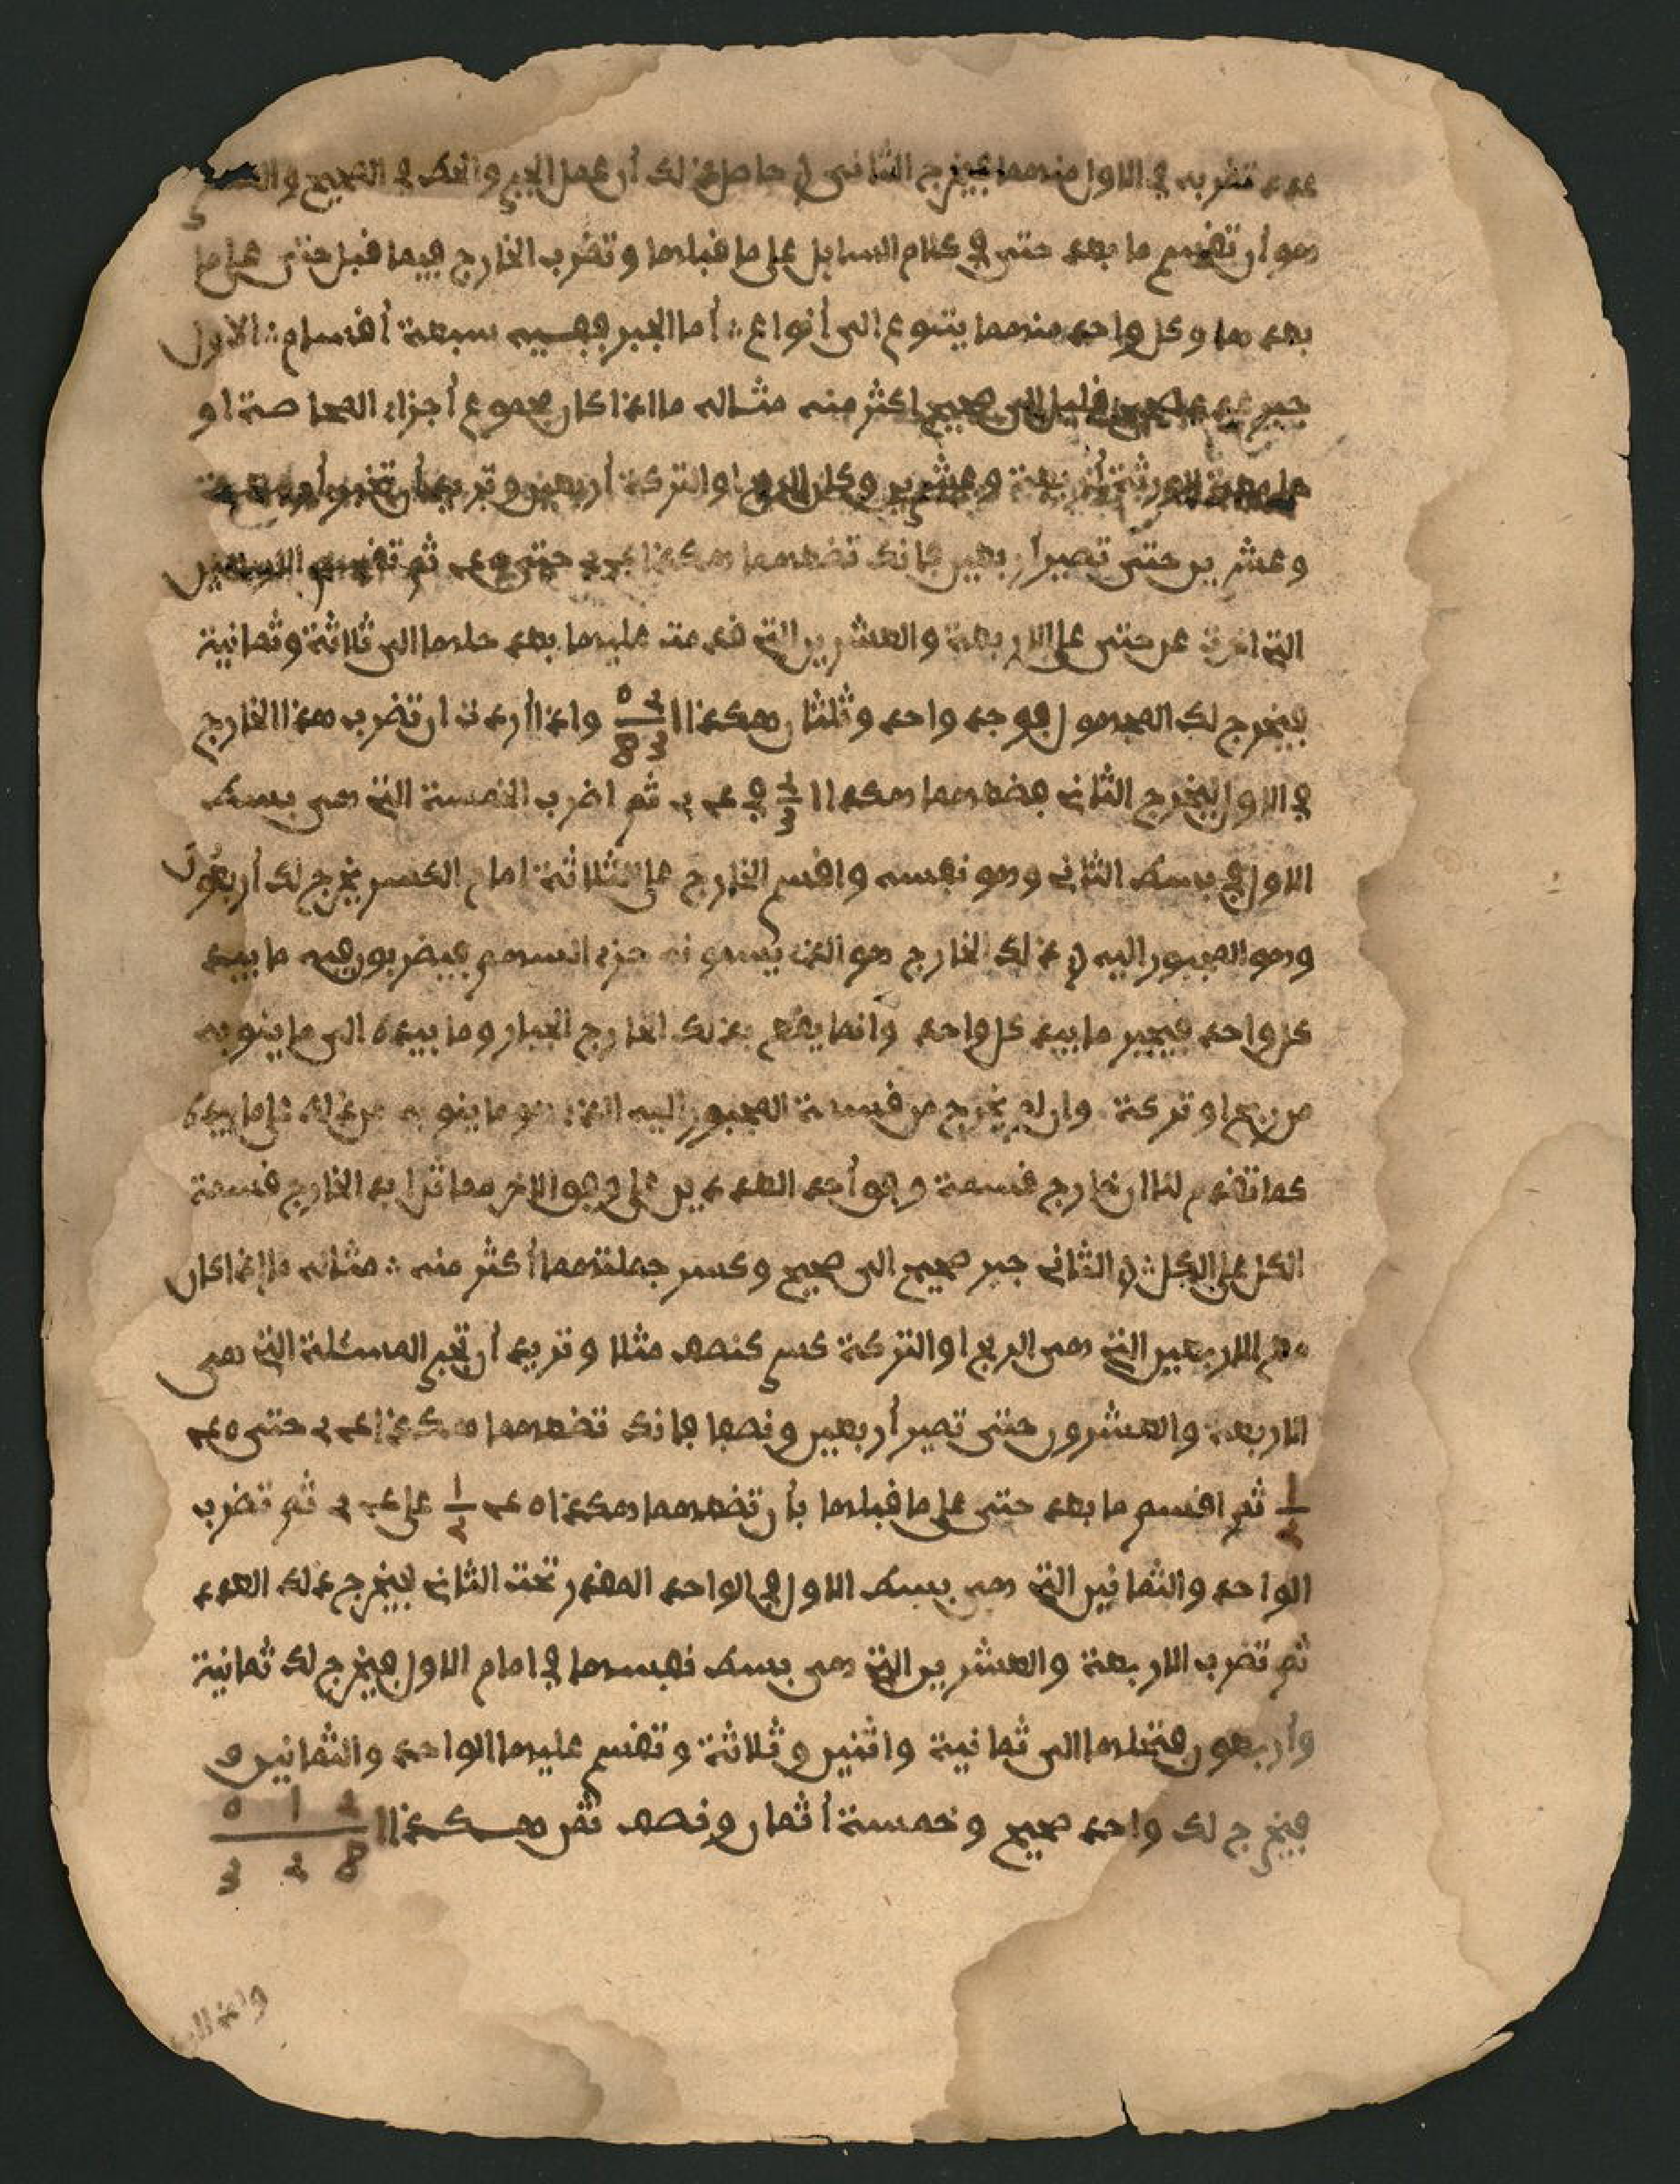 عدد تضربه في الاول منهما يخرج الثاني حاصل ذلك أن عمل الجبر والحط في الصحيح والكسر
هو أن تقسم ما بعد حتى في كلام السايل على ما قبلها وتضرب الخارج فيما قبل حتى على ما
بعدها وكل واحد منهما يتنوع الى أنواع أما الجبر ففيه سبعة أقسام الاول
جبر عدد صحيح قليل الى صحيح اكثر منه مثاله ما اذا كان مجموع أجزاء المحاصة او
أربعة وعشرين وكان الربح او التركة أربعين وتريد أن تجبر أربعة
وعشرين حتى تصير أربعين فانك تضعهما هكذا ٢٤ حتى ٤٠ ثم تقسم الاربعين
التي اخرت عن حتى على الاربعة والعشرين التي قدمت عليها بعد حلها الى ثلاثة وثمانية
فيخرج لك المجهول فوجد واحد وثلثان هكذا ١ ٢ ٠ / ٣ ٨ واذا أردت ان تضرب هذا الخارج
في الاول ليخرج الثاني فضعهما هكذا ١ ٢/٣ في ٢٤ ثم اضرب الخمسة التي هي بسط
الاول في بسط الثاني وهو نفسه واقسم الخارج على الثلاثة امام الكسر يخرج لك أربعون
وهو المجبور اليه ذلك الخارج هو الذي يسمونه جزء السهم فيضربون فيه ما بيد
كل واحد فيجبر ما بيد كل واحد وانما يقع بذلك الخارج الجبار وما بيده الى ما ينوبه
من ربح او تركة وان لم يخرج من قسمة المجبور اليه الذي هو ما ينوبه من ذلك على ما بيده
كما تقدم لنا ان خارج قسمة وفق أحد العددين على وفق الاخر مما ترا به الخارج قسمة
الكل على الكل الثاني جبر صحيح الى صحيح وكسر جملتهما أكثر منه مثاله ما اذا كان
مع الاربعين التي هي الربح او التركة كسر كنصف مثلا وتريد أن تجبر المسئلة التي هي
الاربعة والعشرون حتى تصير أربعين ونصفا فانك تضعهما هكذا ٢٤ حتى ٤٠
١/٢ ثم اقسم ما بعد حتى على ما قبلها بأن تضعهما هكذا ٤٠ ١/٢ على ٢٤ ثم تضرب
الواحد والثمانين التي هي بسط الاول في الواحد المقدر تحت الثاني فيخرج ذلك العدد
ثم تضرب الاربعة والعشرين التي هي بسط نفسها في امام الاول فيخرج لك ثمانية
وأربعون فتحلها الى ثمانية واثنين وثلاثة وتقسم عليها الواحد والثمانين و
فيخرج لك واحد صحيح وخمسة أثمان ونصف ثمن هكذا ١ ٥ ١ ٠ / ٨ ٢ ٣